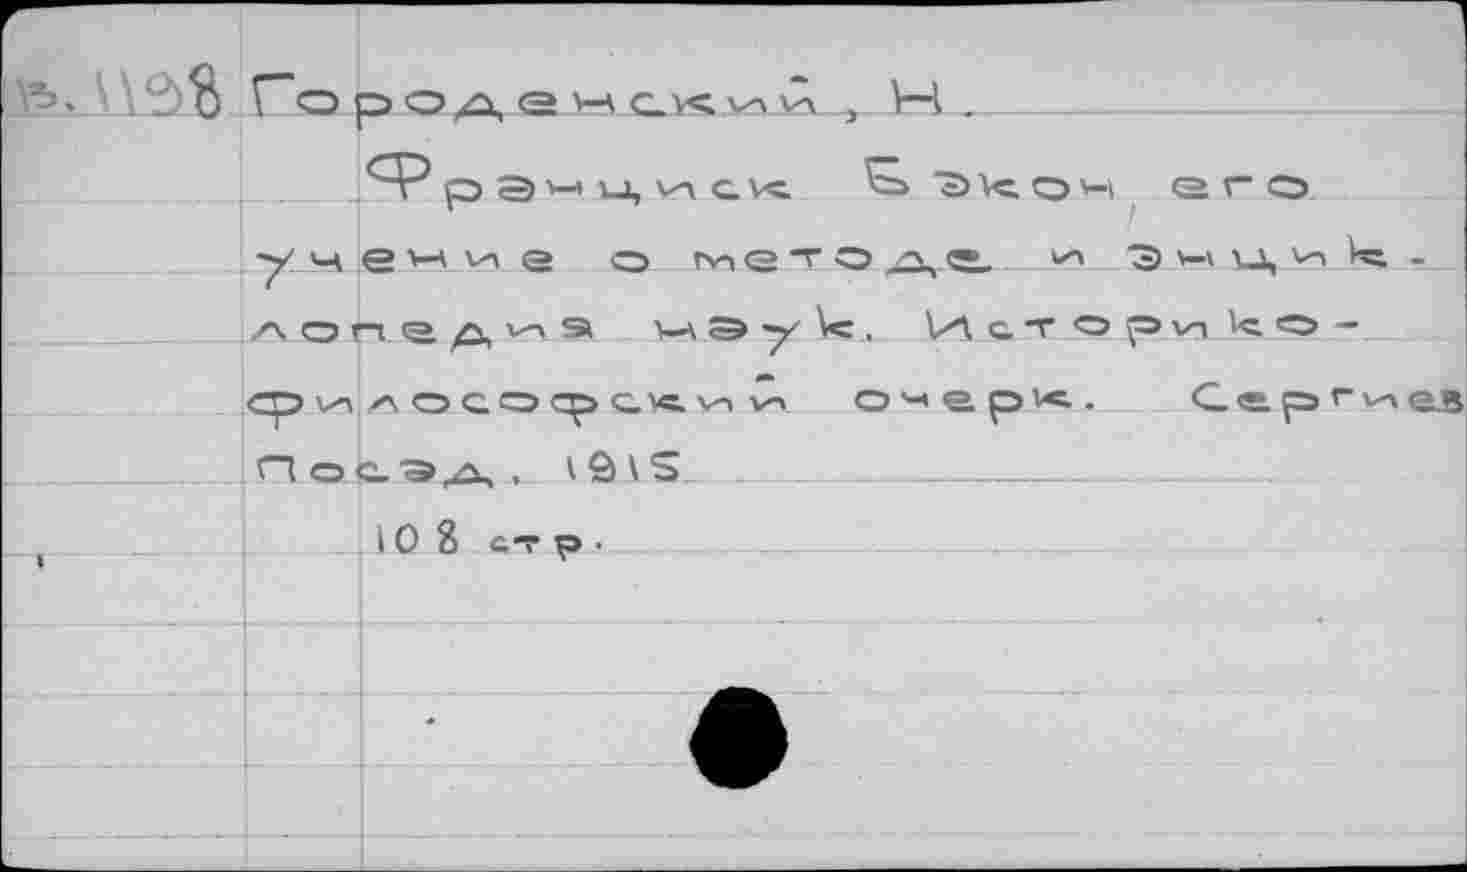 В. 1198 Городенский, Н.
Франциск Бэкон его
учение о методе и энцик-
лопедия наук. Историко-
философский очерк. Сергиев
Посад, 1915
108 стр.